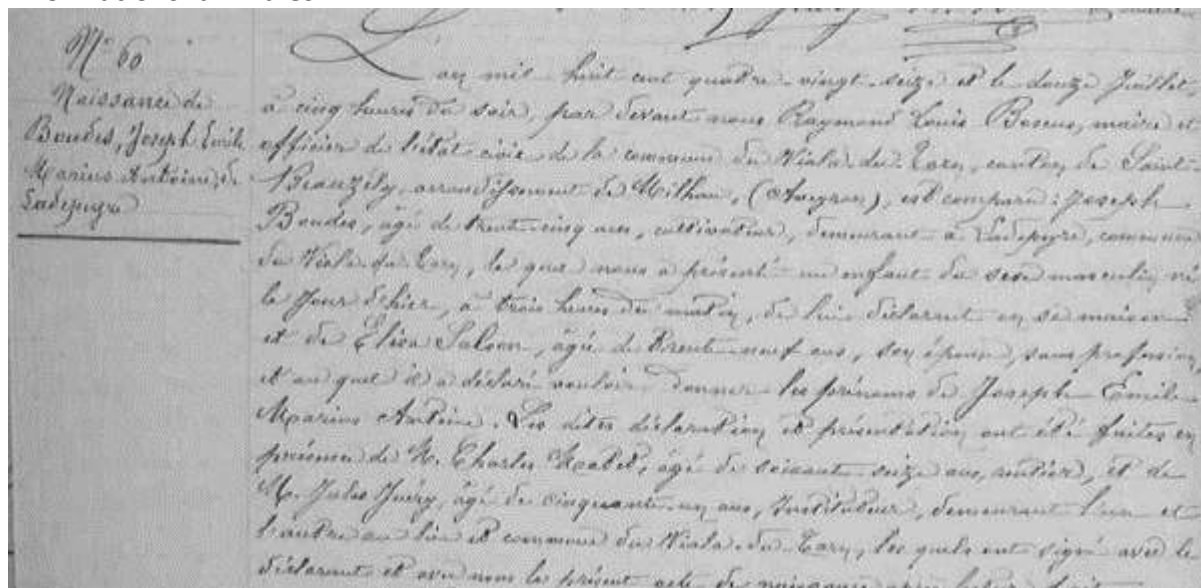 N° 60
Naissance de
Boudes, Joseph Emile
Marius Antoine, de
Ladepeyre
L'an mil huit cent quatre-vingt-seize et le douze Juillet,
à cinq heures du soir, par devant nous Raymond Louis Boscus, maire et
officier de l'état civil de la commune du Viala du Tarn, canton de Saint-
Beauzély, arrondissement de Milhau, (Aveyron), est comparu: Joseph
Boudes, âgé de trente-cinq ans, cultivateur, demeurant à Ladepeyre, commune
du Viala du Tarn, le quel nous a présenté un enfant du sexe masculin, né
le Jour d'hier, à trois heures du matin, de lui déclarant en sa maison
et de Elisa Salson, âgée de trente-neuf ans, son épouse, sans profession,
et au quel il a déclaré vouloir donner les prénoms de Joseph Emile
Marius Antoine. Les dites déclaration et présentation ont été faites en
présence de M. Charles, âgé de soixante-seize ans, rentier, et de
M. Jules Juéry, âgé de cinquante-un ans, Instituteur, demeurant l'un et
l'autre au lieu et commune du Viala-du-Tarn, les quels ont signé avec le
déclarant et avec nous le présent acte de naissance après lecture